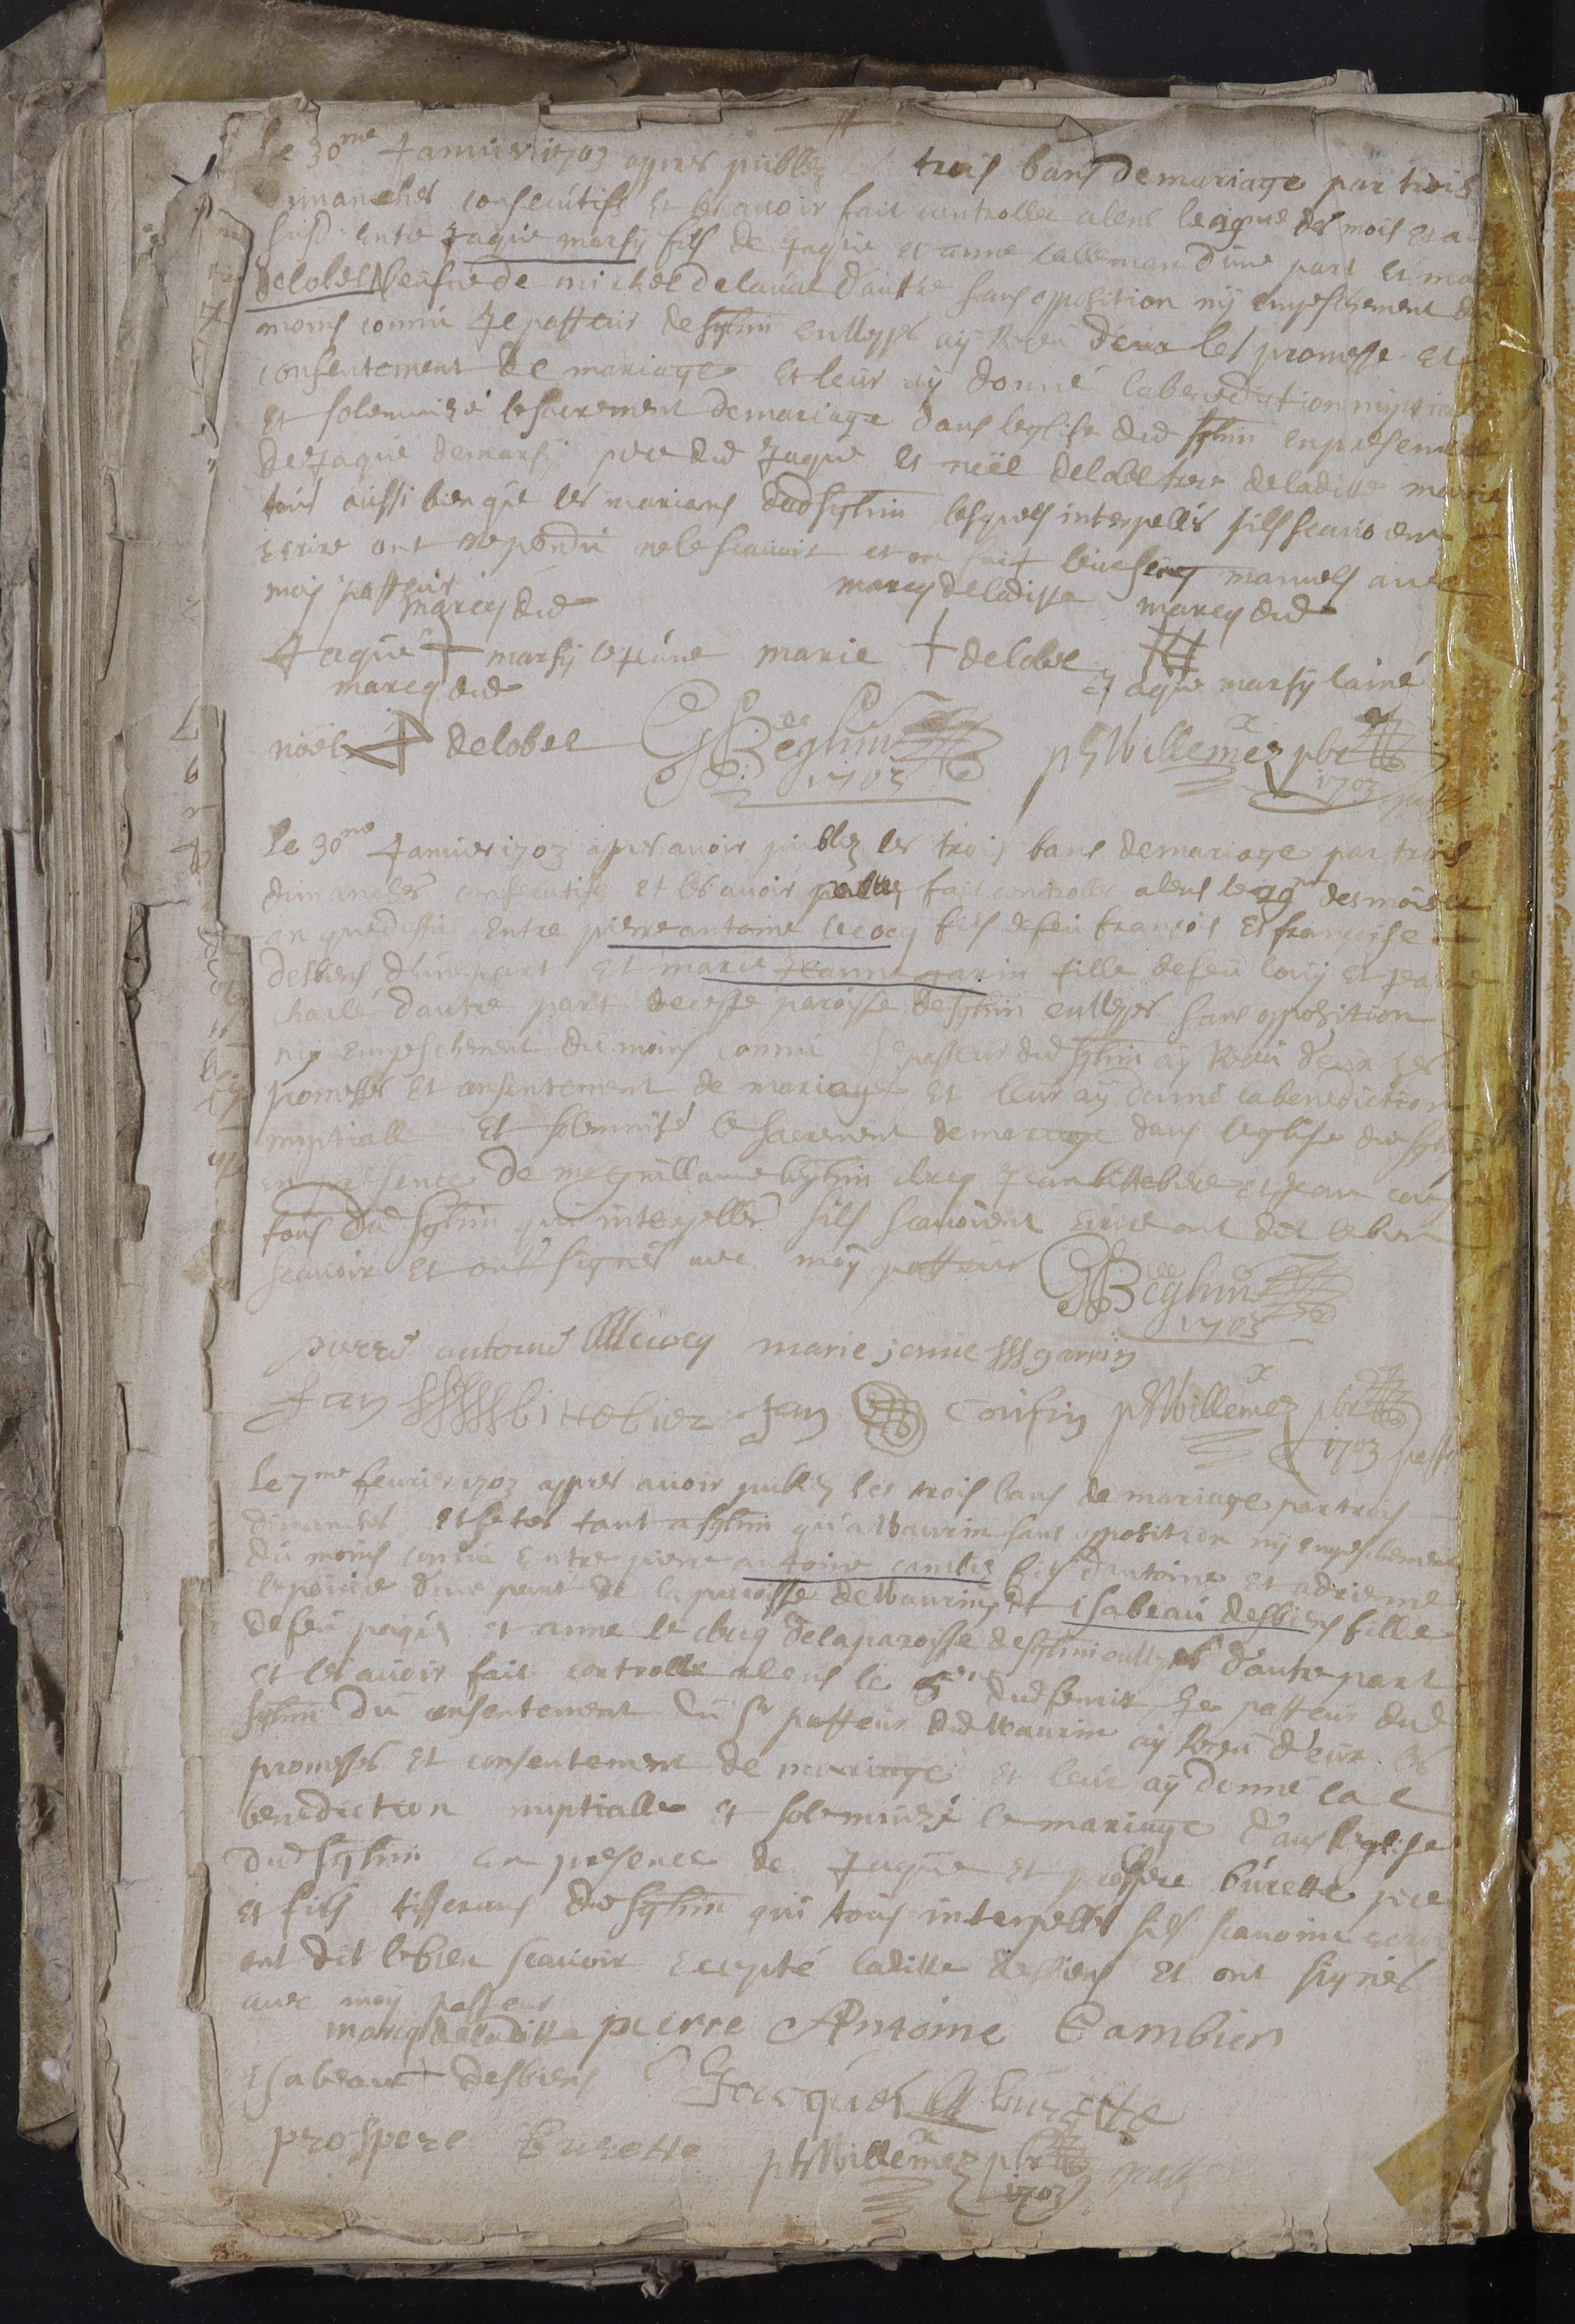 Le 30me Januier 1703 appres publiez les trois bans de mariage par trois
dimanches consecutifs et les auoir fait controller a lens le 29me des mois et an
susd entre Jaque marsy fils de Jaque et anne lalleman d'une part et marie
delobel veufue de michel delaual dautre sans opposition ny empeschement du
moins connu Je pasteur de sghin enweppes ay Receu deux les promesse et
consentement de mariage et leur ay donné la benediction nuptialle
et solemnizé le sacrement de mariage dans leglise dud sghin en presence
de Jaque demarsi pere dud Jaque et noël delobel frere de laditte marie
tous aussi bien que les marians dud sghin lesquels interpellés sils scauoient
escrire ont repondu ne le scauoir et ont fait leur seing manuels auec
moy pasteur
marcq dud marcq de laditte marcq dud
Jaque + marsy le jeune marie + delobel Jaque marsy lainé
marcq dud
noël delobel G de Beghin 1703 ph Willemez pbr 1703 past
Le 30me Januier 1703 apres auoir publiez les trois bans de mariage par trois
dimanches consecutifs et les auoir fait controller a lens le 29me des mois et
an que dessus entre pierre antoine lecocq fils de feu francois et francoise
desbiens d'une part et marie Jeanne garin fille de feu louy et jeanne
charle dautre part de cette paroisse de sghin enweppes sans opposition
ny empeschement du moins connu Je pasteur dud sghin ay Receu deux les
promesses et consentement de mariage et leur ay donné la benediction
nuptialle et solemnisé le sacrement de mariage dans leglise dud sghin
en presence de me guillaume beghin clercq Jean bittebiere et Jean cousin
tous dud sghin qui interpellés sils scauoient escrire ont dit le bien
scauoir et ont signés auec moy pasteur G de Beghin 1703
pierre antoine lecocq marie jenne garrin
Jan bittebier Jan Cousin ph Willemez pbr 1703 past
Le 7me feurier 1703 appres auoir publiez les trois bans de mariage par trois
dimanches et festes tant a sghin qu'a Wauurin sans opposition ny empeschement
du moins connu entre pierre antoine cambier fils dantoine et adrienne
lepoiure d'une part de la paroisse de Wauurin et isabeau desbiens fille
de feu paquis et anne le clercq de la paroisse de sghin enweppes d'autre part
et les auoir fait controller a lens le 5me dud feurier Je pasteur dud
sghin du consentement du Sr pasteur dud Wauurin ay Receu d'eux les
promesses et consentement de mariage et leur ay donné la
benediction nuptialle et solemnizé le mariage dans leglise
dud sghin en presence de Jaque et prospere burette pere
et fils tisserans dud sghin qui tous interpellés sils scauoient escrire
ont dit le bien scauoir excepté laditte desbiens et ont signés
auec moy pasteur
marcq de laditte pierre Antoine Cambier
isabeau + desbiens Jacques burette
prospere burette ph Willemez pbr 1703 past